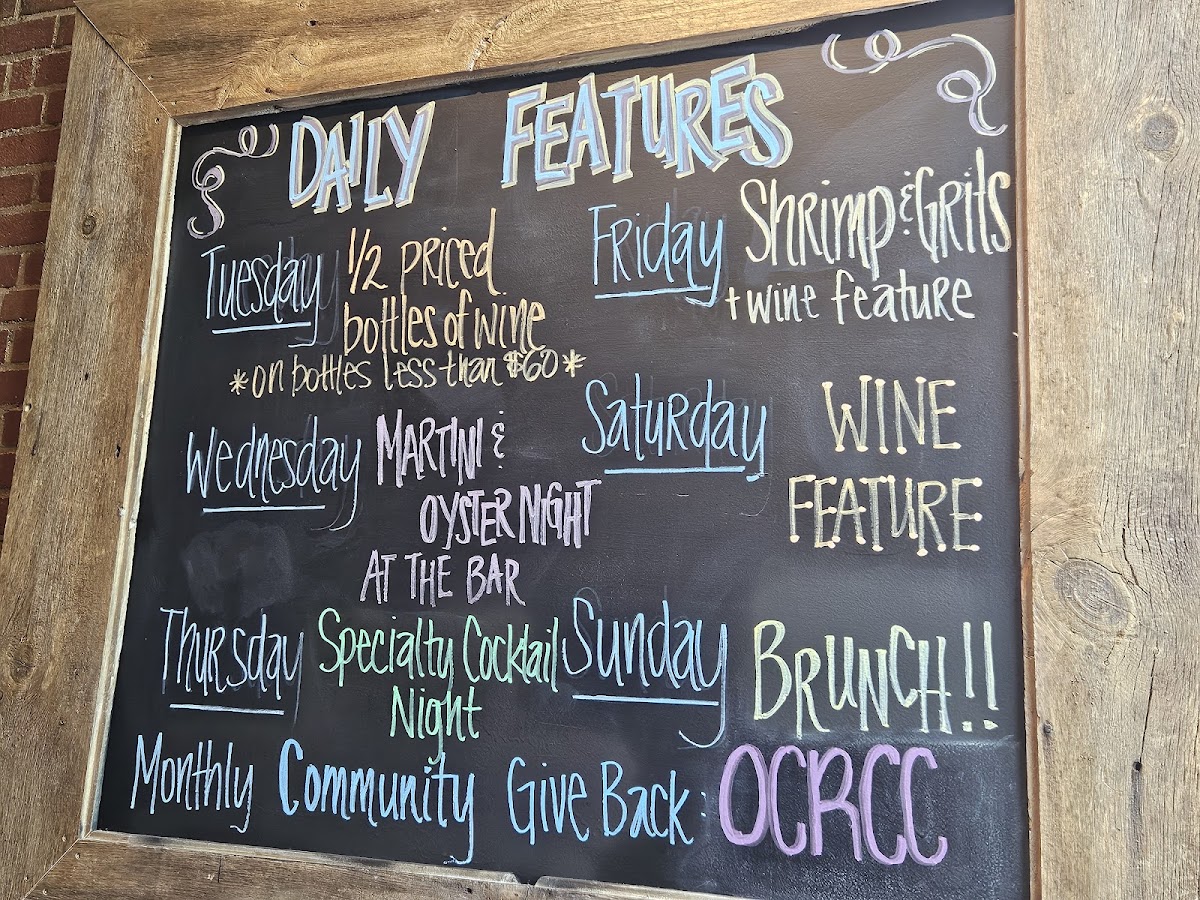 DAILY FEATURES
Tuesday 1/2 priced
bottles of wine
*on bottles less than $60*
Wednesday MARTINI &
OYSTER NIGHT
AT THE BAR
Thursday Specialty Cocktail
Night
Friday Shrimp & Grits
+ wine feature
Saturday WINE
FEATURE
Sunday BRUNCH!!
Monthly Community Give Back: OCRCC